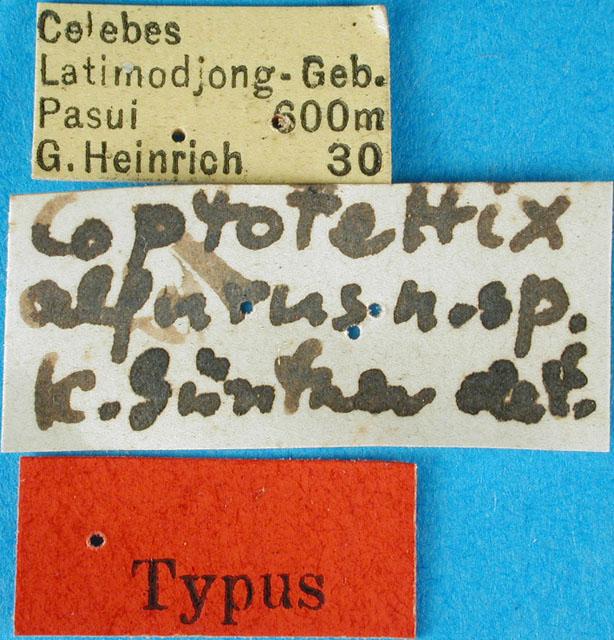 Celebes
Latimodjong-Geb.
Pasui 600m
G. Heinrich 30
Coptotettix
alfurus n. sp.
K. Günther det.
Typus